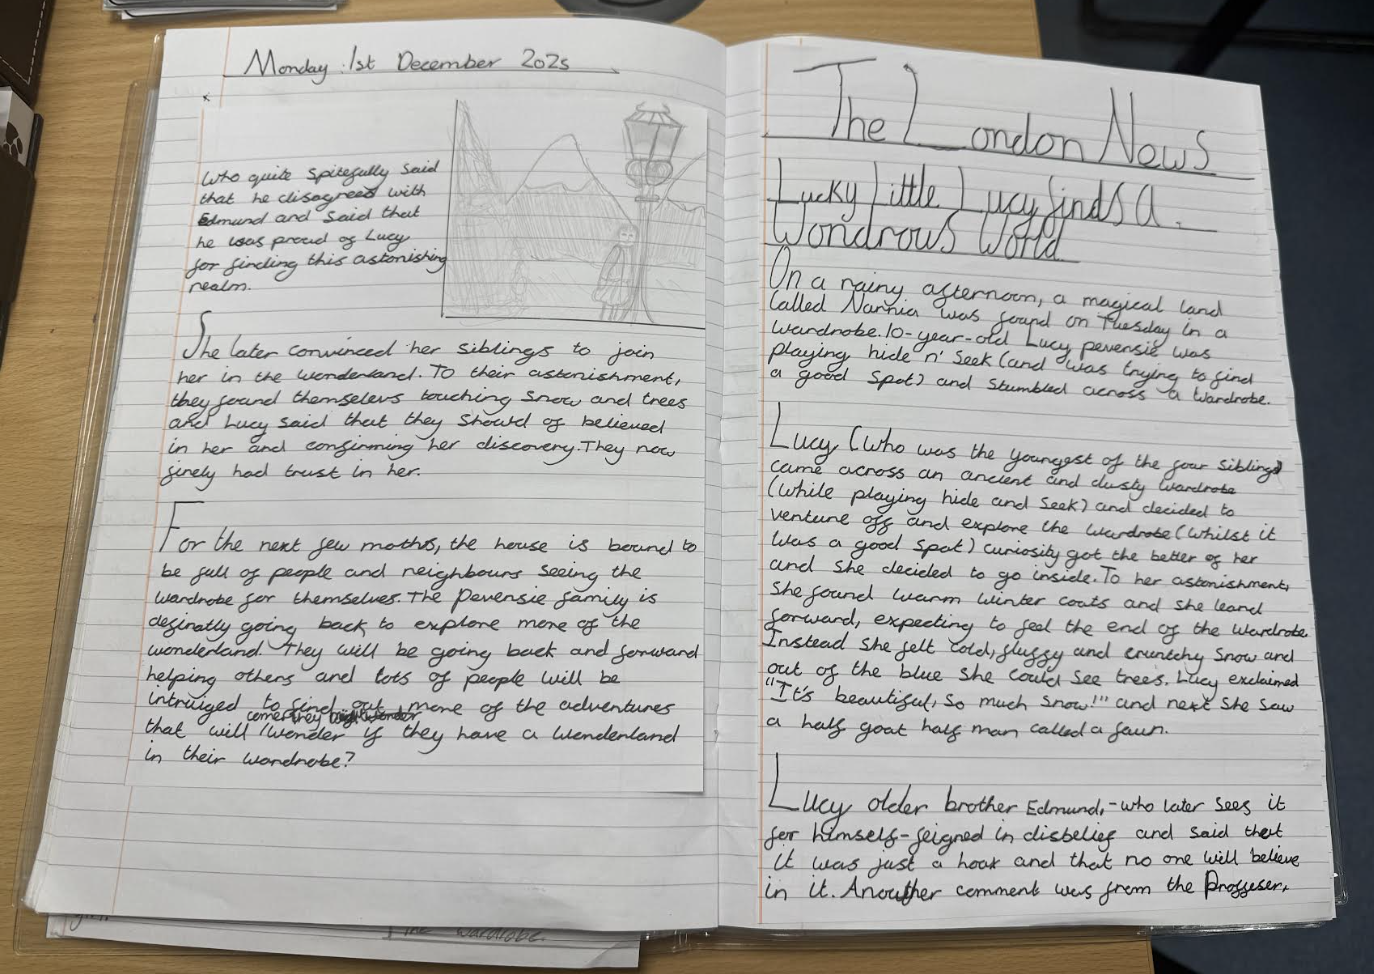 Monday 1st December 2025
who quite spitefully said
that he disagreed with
Edmund and said that
he was proud of Lucy
for finding this astonishing
realm.
She later convinced her siblings to join
her in the wonderland. To their astonishment,
they found themselevs touching snow and trees
and Lucy said that they should of believed
in her and confirming her discovery. They now
finely had trust in her.
For the next few moths, the house is bound to
be full of people and neighbours seeing the
wardrobe for themselves. The Pevensie family is
definatly going back to explore more of the
wonderland. They will be going back and forward
helping others and lots of people will be
intruiged to find out more of the adventures
come. they
that will wonder if they have a wonderland
in their wardrobe?
The London News
Lucky Little Lucy finds a
Wondrous World
On a rainy afternoon, a magical land
called Narnia was found on Tuesday in a
wardrobe. 10-year-old Lucy pevensie was
playing hide n' seek (and was trying to find
a good spot) and stumbled across a wardrobe.
Lucy (who was the youngest of the four siblings)
came across an ancient and dusty wardrobe
(while playing hide and seek) and decided to
venture off and explore the wardrobe (whilst it
was a good spot) curiosity got the better of her
and she decided to go inside. To her astonishment,
she found warm winter coats and she leand
forward, expecting to feel the end of the wardrobe.
Instead she felt cold, fluffy and crunchy snow and
out of the blue she could see trees. Lucy exclaimed
"It's beautiful, so much snow!" and next she saw
a half goat half man called a faun.
Lucy older brother Edmund, -who later sees it
for himself- feigned in disbelief and said that
it was just a hoax and that no one will believe
in it. Another comment was from the Proffeser,
The wardrobe.